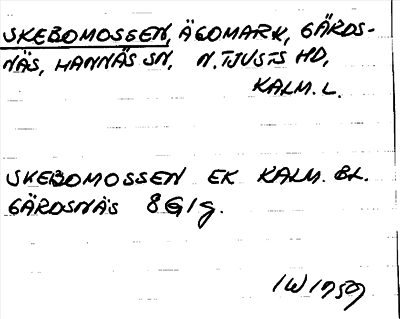 SKEBOMOSSEN, ÄGOMARK, GÄRDS-
NÄS, HANNÄS SN, N. TJUSTS HD,
KALM. L.
SKEBOMOSSEN EK KALM. BL.
GÄRDSNÄS 8G1g.
IW 1959